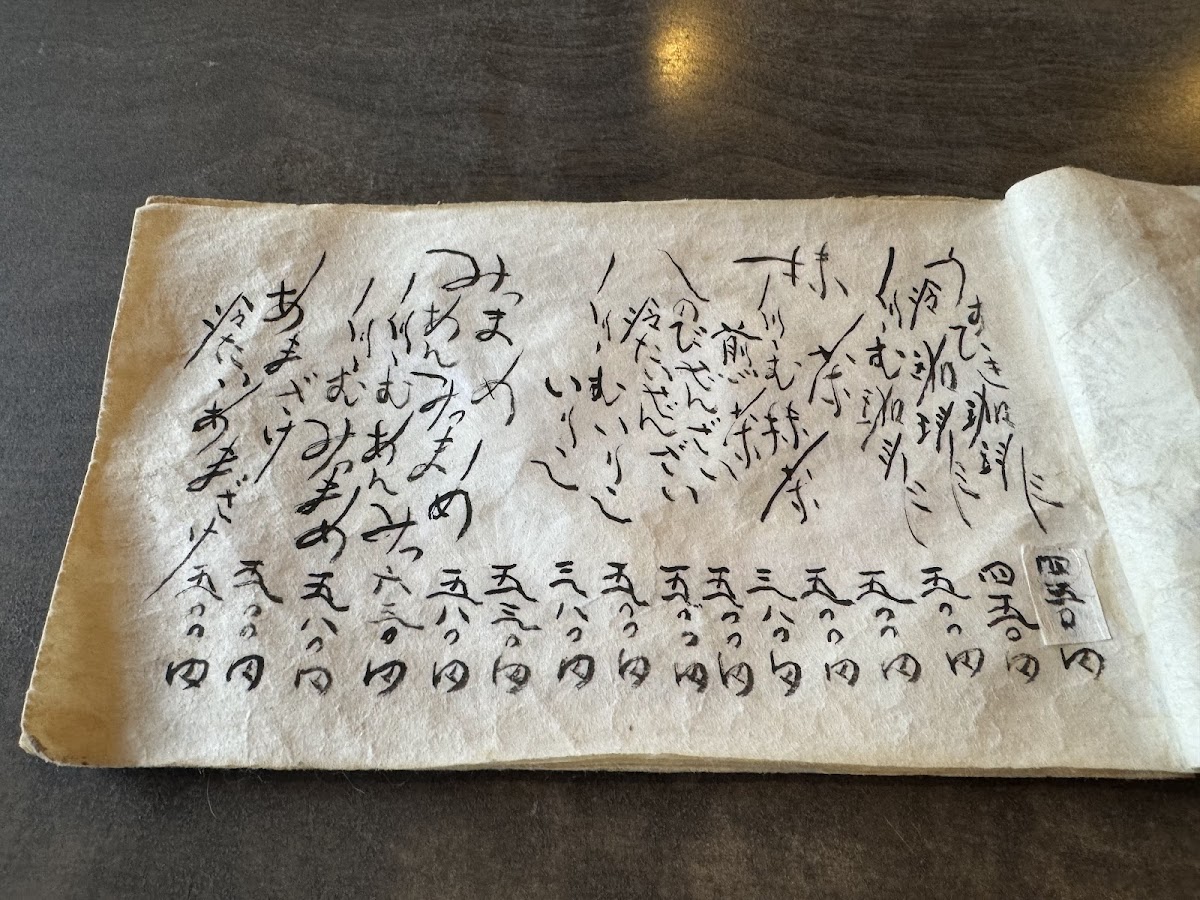 うすびき珈琲 四五〇円
冷珈琲 四五〇円
くりいむ珈琲 五〇〇円
抹茶 五〇〇円
くりいむ抹茶 五〇〇円
煎茶 三八〇円
ざんざい 五〇〇円
冷たいざんざい 五〇〇円
くりいむいりこ 五〇〇円
いりこ 三八〇円
みつまめ 五三〇円
あんみつまめ 五八〇円
くりいむあんみつ 六三〇円
くりいむみつまめ 五八〇円
あまざけ 五〇〇円
冷たいあまざけ 五〇〇円